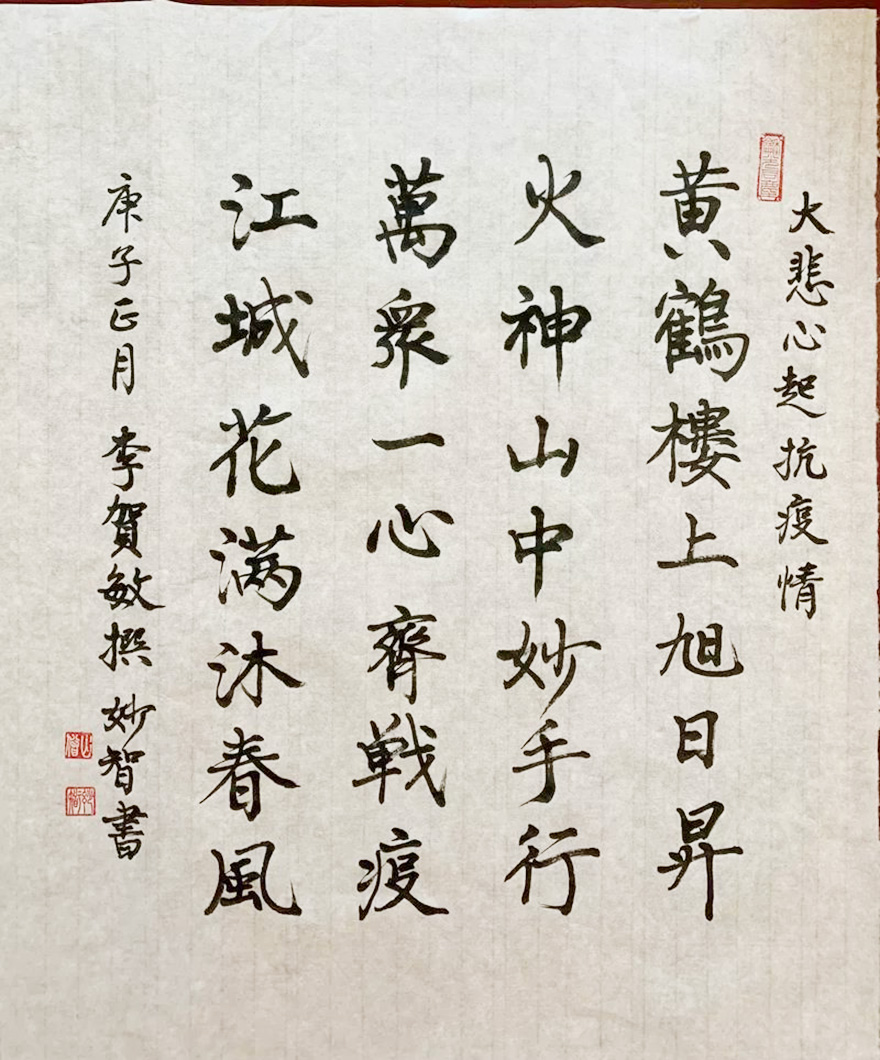 大悲心起抗疫情
黄鶴樓上旭日昇
火神山中妙手行
萬眾一心齊戰疫
江城花满沐春風
庚子正月 李賀敏撰 妙智書